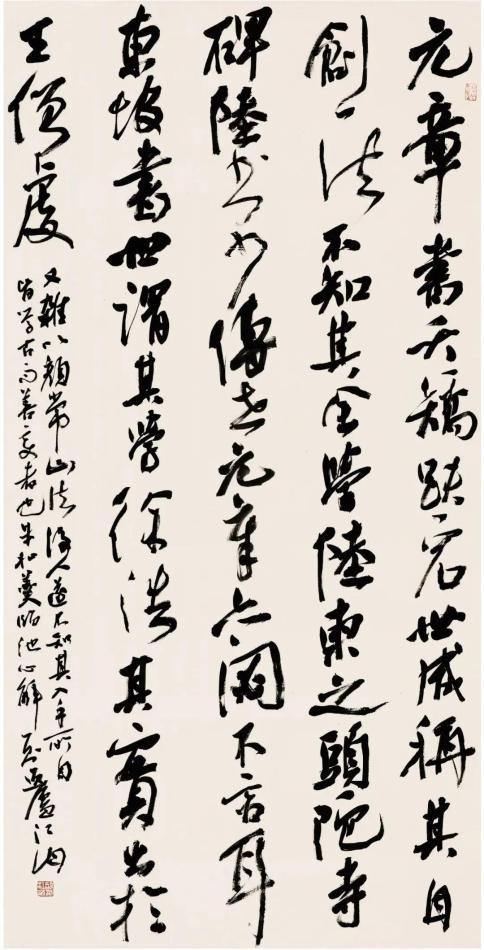 元章書夭矯跌宕世咸稱其自
創一法不知其全學陸柬之頭陀寺
碑陸書傳世元章亦閟不言耳
東坡書世謂其學徐浩其實出於
王僧虔
又雜以顏常山法後人遂不知其入手所自
皆學古而善變者也朱和羹臨池心解